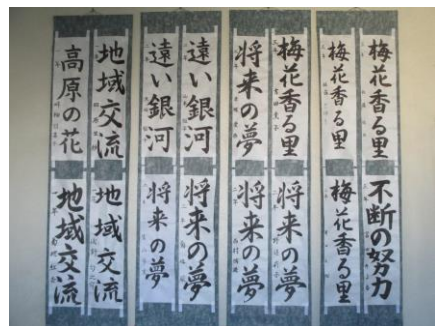 梅花香る里
梅花香る里
梅花香る里
将来の夢
遠い銀河
遠い銀河
地域交流
高原の花
不断の努力
梅花香る里
将来の夢
将来の夢
将来の夢
将来の夢
地域交流
地域交流